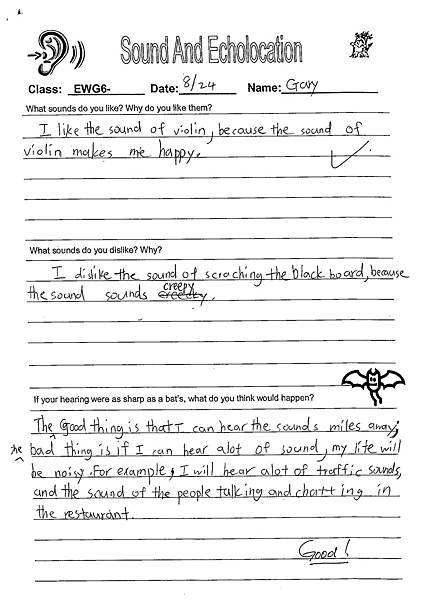 Sound And Echolocation
Class: EWG6- Date: 8/24 Name: Gary
What sounds do you like? Why do you like them?
I like the sound of violin, because the sound of
violin makes me happy.
What sounds do you dislike? Why?
I dislike the sound of scraching the black board, because
creepy
the sound sounds .
If your hearing were as sharp as a bat's, what do you think would happen?
The Good thing is that I can hear the sounds miles away;
the bad thing is if I can hear alot of sound, my life will
be noisy. For example, I will hear alot of traffic sounds,
and the sound of the people talking and chatting in
the restaurant.
Good!